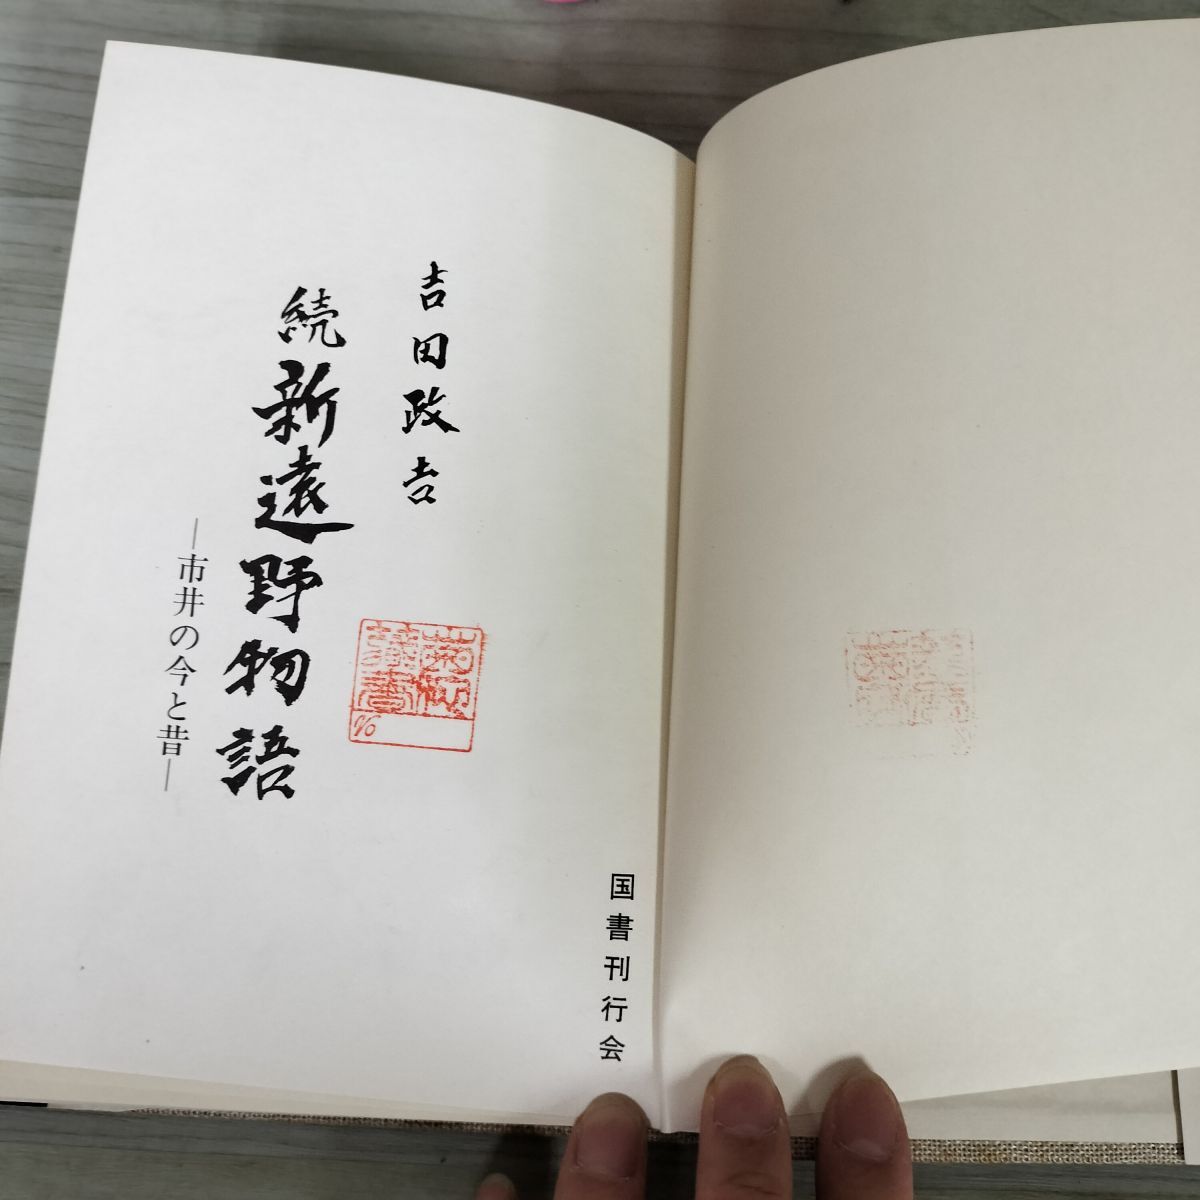 吉田政吉
続 新遠野物語
―市井の今と昔―
国書刊行会